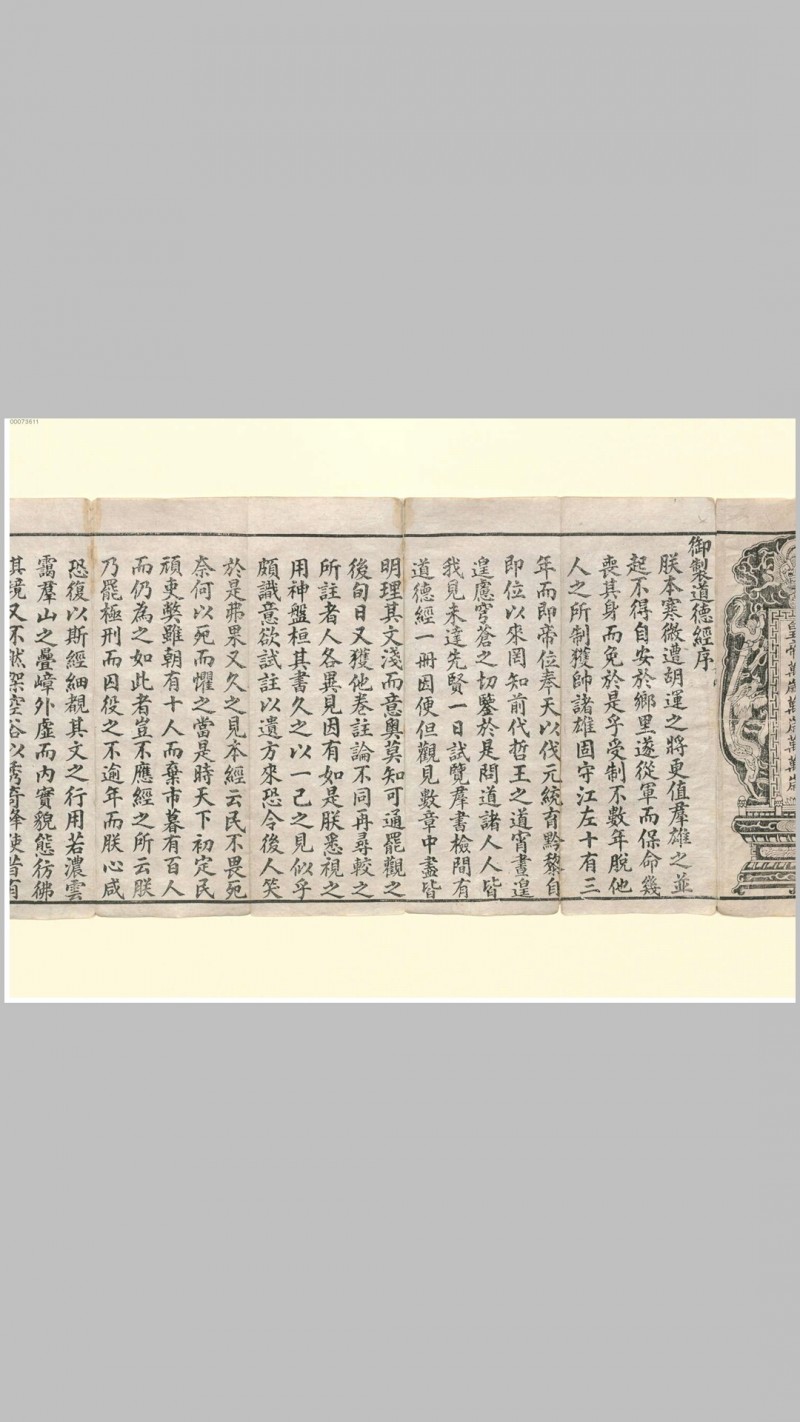 00073611
皇帝萬歲萬歲萬萬歲
御製道德經序
朕本寒微遭胡運之將更值羣雄之並
起不得自安於鄉里遂從軍而保命幾
喪其身而免於是乎受制不數年脫他
人之所制獲帥諸雄固守江左十有三
年而即帝位奉天以伐元統育黔黎自
即位以來罔知前代哲王之道宵晝遑
遑慮穹蒼之切鑒於是問道諸人人皆
我見未達先賢一日試覽羣書檢間有
道德經一冊因便但觀見數章中盡皆
明理其文淺而意奧莫知可通罷觀之
後旬日又獲他卷註論不同再尋較之
所註者人各異見因有如是朕悉視之
用神盤桓其書久之以一己之見似乎
頗識意欲試註以遺方來恐令後人笑
於是弗果又久之見本經云民不畏死
奈何以死而懼之當是時天下初定民
頑吏弊雖朝有十人而棄市暮有百人
而仍為之如此者豈不應經之所云朕
乃罷極刑而囚役之不逾年而朕心咸
恐復以斯經細覩其文之行用若濃雲
靄羣山之疊嶂外虛而內實貌態彷彿
其境又不然架空谷以秀奇峰使昔有